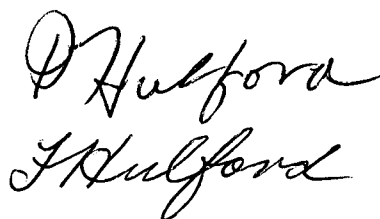 D Hulford
F Hulford